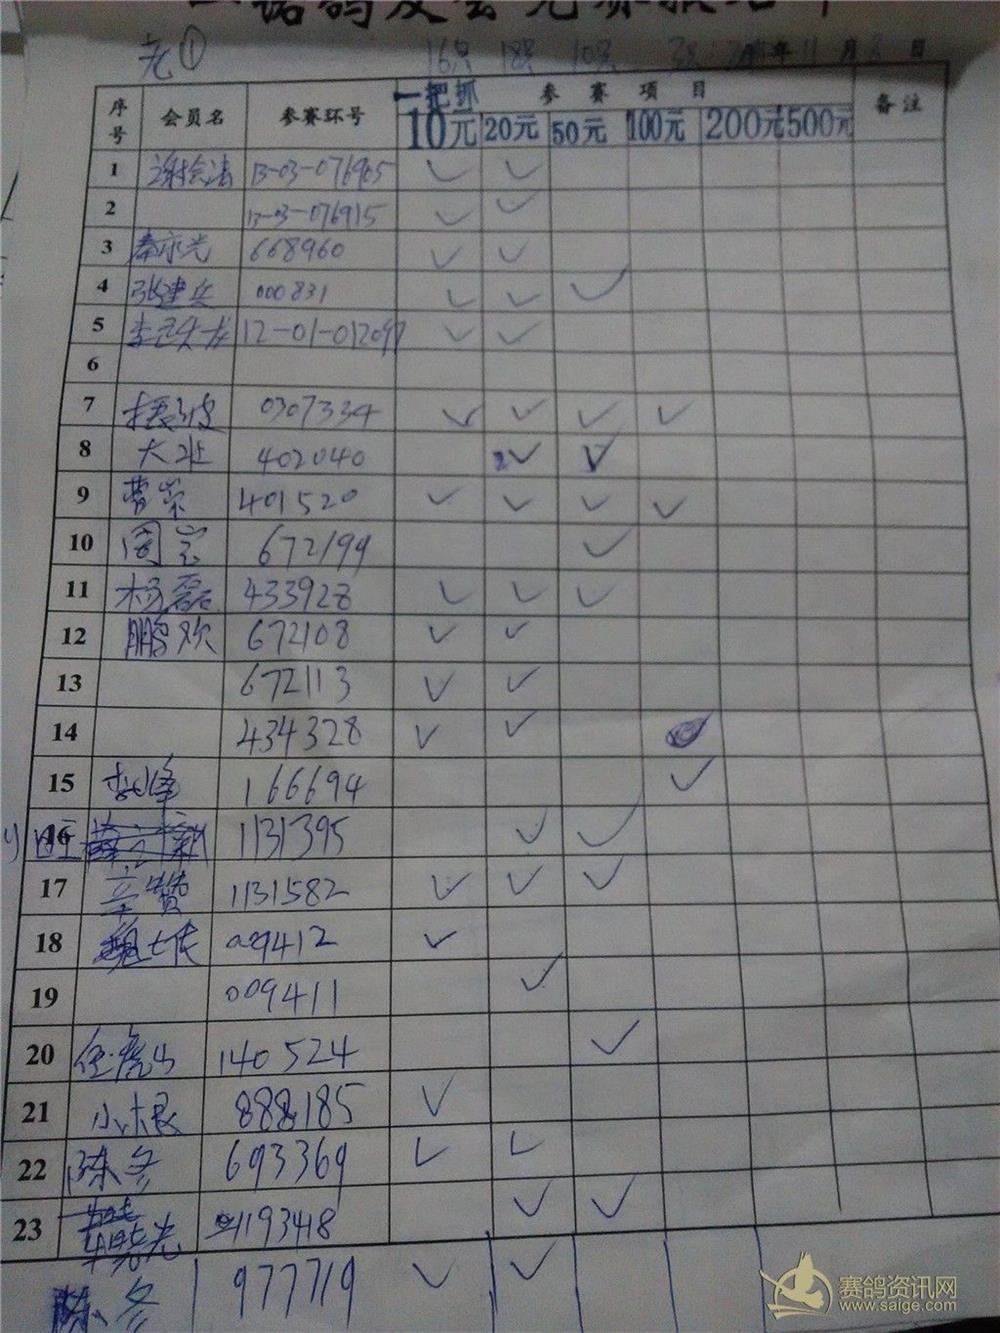 老①
16只 18只 10只 3只 年11月 日
序号 会员名 参赛环号 一把抓 参赛项目 备注
10元 20元 50元 100元 200元 500元
1 13-03-076905 ✓ ✓
2 13-03-076915 ✓ ✓
3 秦永光 668960 ✓ ✓
4 张建兵 000831 ✓ ✓ ✓
5 12-01-012097 ✓ ✓
6
7 0307334 ✓ ✓ ✓ ✓
8 大班 402040 ✓ ✓
9 曹荣 401520 ✓ ✓ ✓ ✓
10 周宏 672199 ✓
11 杨磊 433928 ✓ ✓ ✓
12 鹏欢 672108 ✓ ✓
13 672113 ✓ ✓
14 434328 ✓ ✓
15 166694 ✓
16 1131395 ✓ ✓
17 辛赞 1131582 ✓ ✓ ✓
18 009412 ✓
19 009411 ✓
20 任虎山 140524 ✓
21 小根 888185 ✓
22 陈冬 693369 ✓ ✓
23 1193418 ✓ ✓
陈冬 977719 ✓ ✓
赛鸽资讯网
www.saige.com